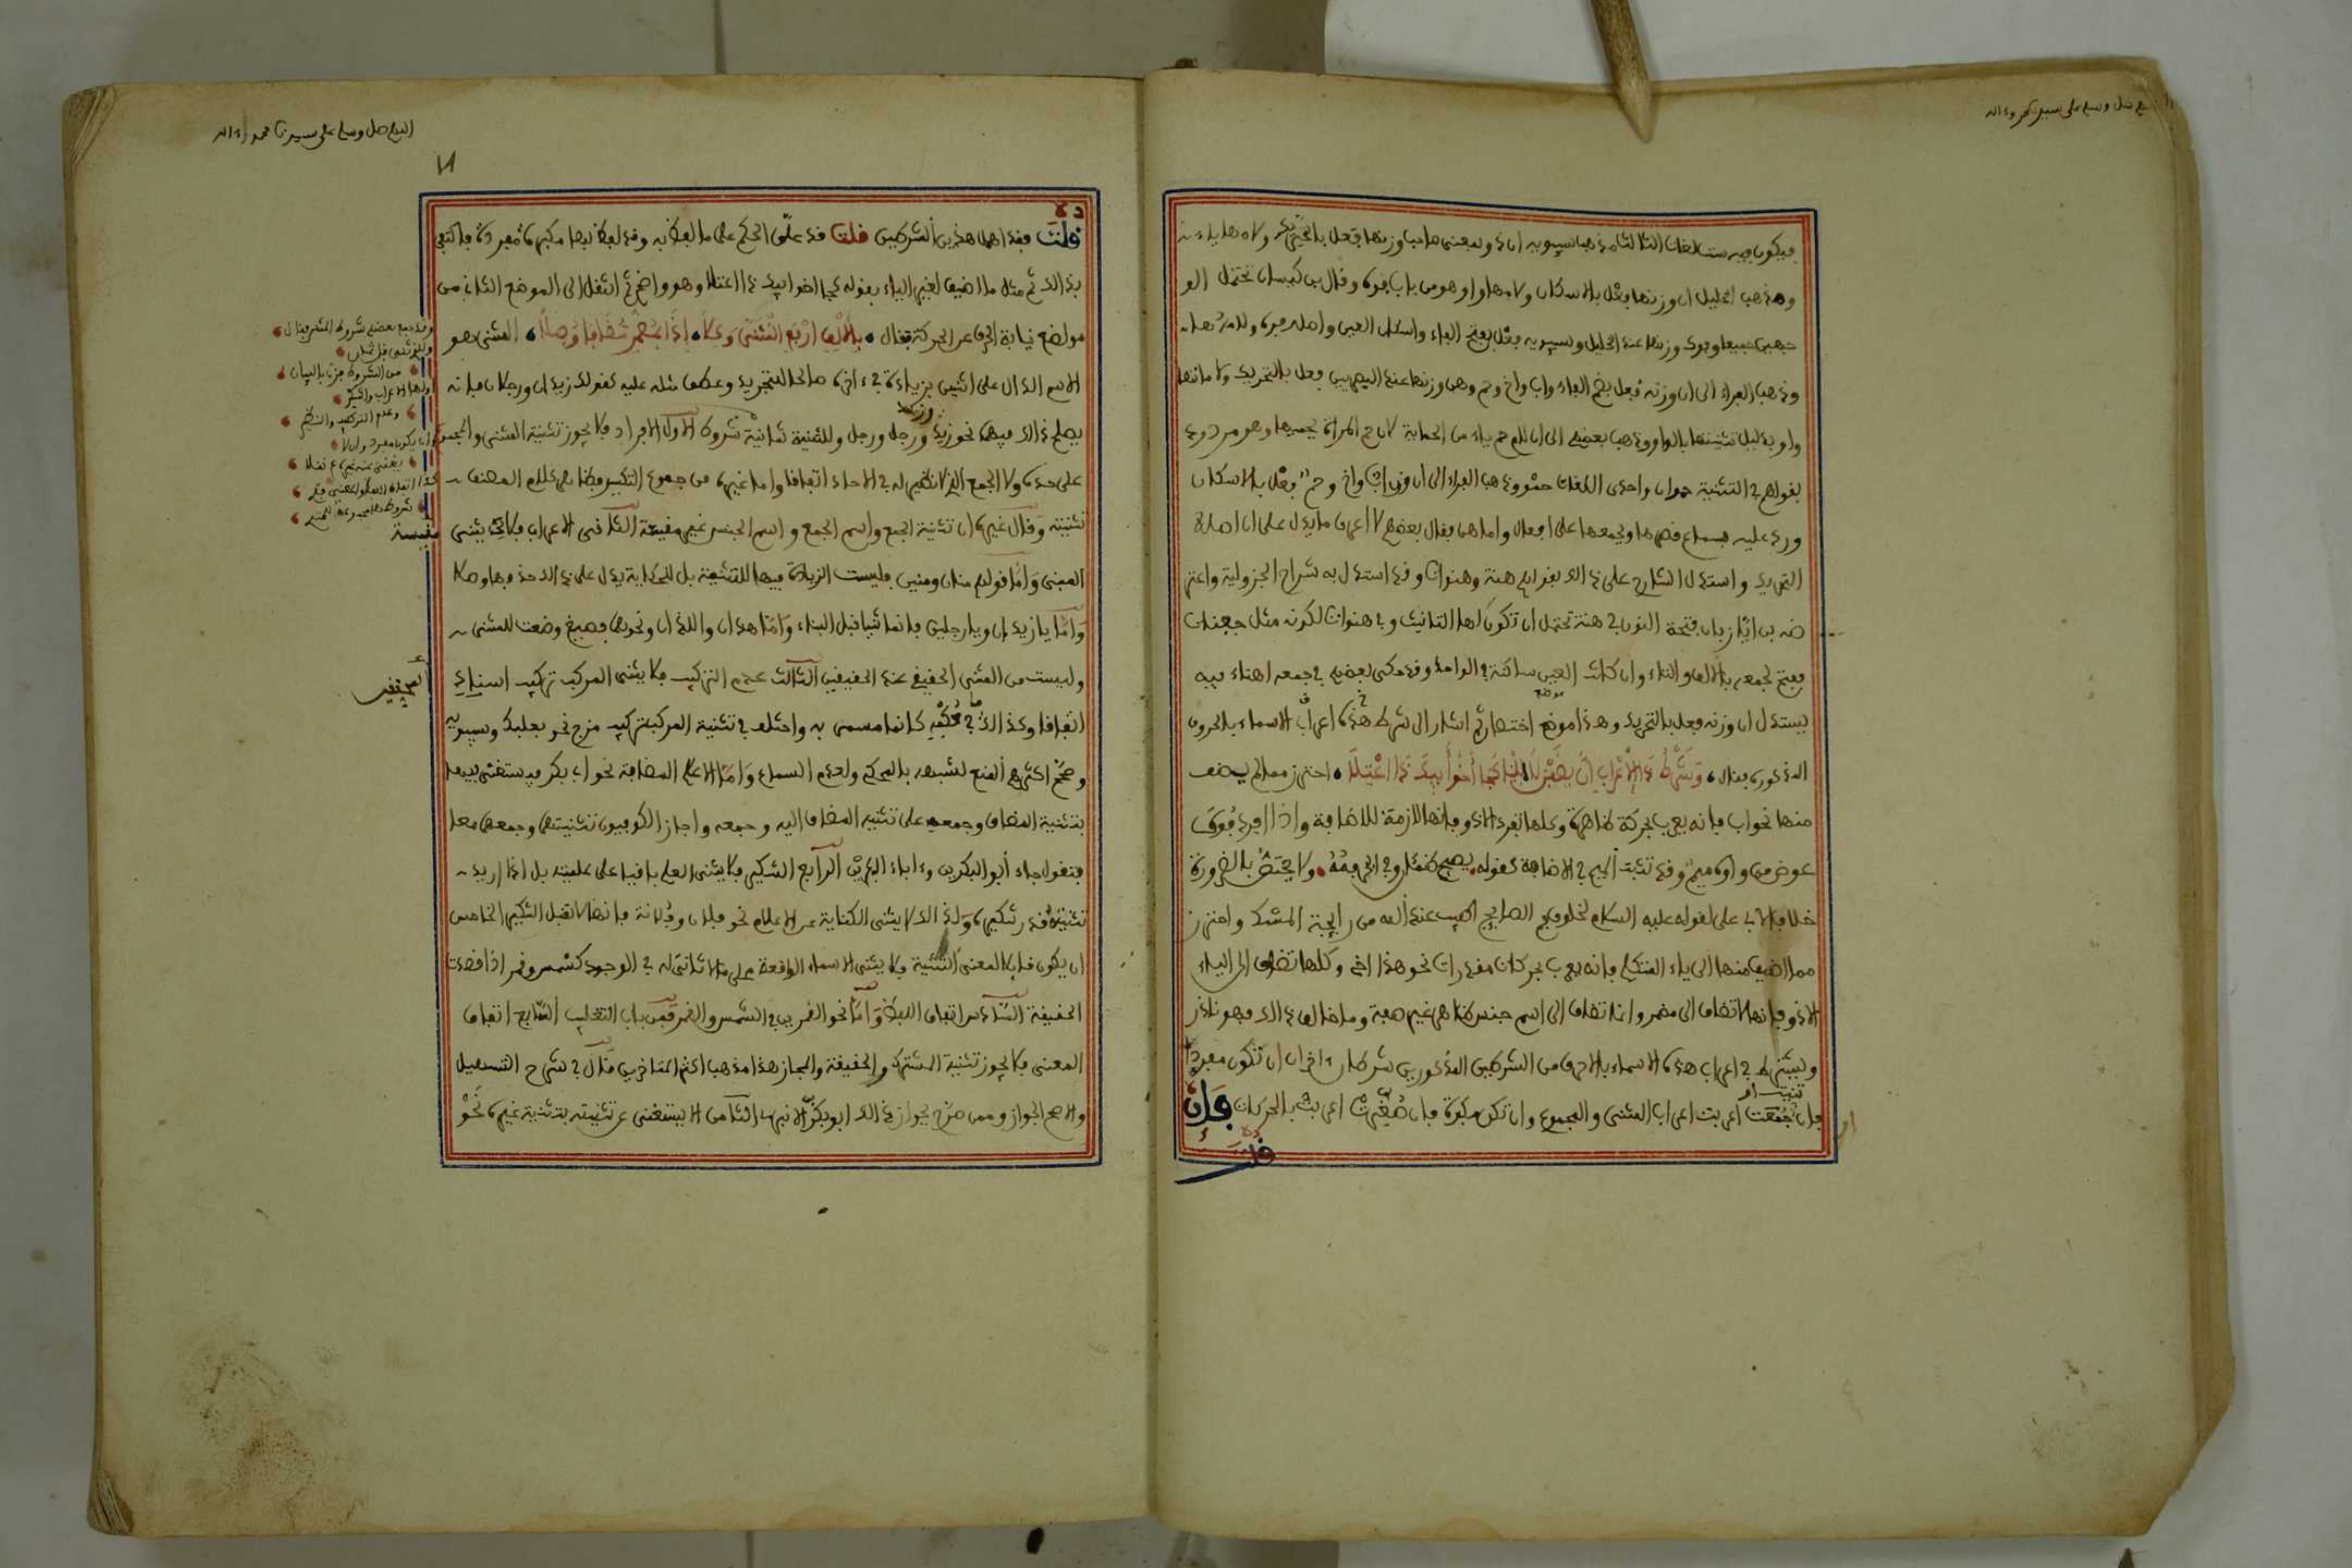 فيكون فيه ست لغات الثالثة مذهب سيبويه ان ذو بمعنى صاحب وزنها فعل بالتحريك ولامها ياء
ومذهب الخليل ان وزنها فعل بالاسكان ولامها واو وهو من باب قوة وقال بن كيسان تحتمل الو
جهين جميعا وفوك وزنها عند الخليل وسيبويه فعل بفتح الفاء واسكان العين واصله فوه ولامه هاء
وذهب الفراء الى ان وزنه فعل بضم الفاء واب واخ وحم وهن وزنها عند البصريين فعل بالتحريك ولاماتها
واو بدليل تثنيتها بالواو وذهب بعضهم الى ان لام حم ياء من الحماية لان حم المراة يحميها وهو مردود
بقولهم في التثنية حموان واحدى اللغات حمو وذهب الفراء الى ان وزن اب واخ وحم فعل بالاسكان
ورد عليه بسماع قصرها وبجمعها على افعال واما هن فقال بعضهم لا اعرف ما يدل على ان اصله
التحريك واستدل الشارح على ذلك بقولهم هنة وهنوات وقد استدل به شراح الجزولية واعتر
ضه بن اياز بان فتحة النون في هنة تحتمل ان تكون لهاء التانيث وفي هنوات لكونه مثل جفنات
ففتح لجمعه بالالف والتاء وان كانت العين ساكنة في الواحد وقد حكى بعضهم في جمعه اهناء فبه
يستدل ان وزنه فعل بالتحريك وهذا موضع اختصار ثم اشار الى شرط هذه اعراب الاسماء بالحروف
المذكورة فقال وشرط ذا الاعراب ان يضفن لا لليا كجا اخو ابيك ذا اعتلا احترز مما لم يضف
منها نحو اب فانه يعرب بحركة ظاهرة وكلها تفرد الا ذو فانها لازمة للاضافة واذا افرد فوك
عوض من واوه ميم وقد تثبت الميم في الاضافة كقوله يصبح ظمئان وفي البحر فمه ولا يختص بالضرورة
خلافا لابي علي لقوله عليه السلام لخلوف فم الصايم اطيب عند الله من رايحة المسك واحترز
مما اضيف منها الى ياء المتكلم فانه يعرب بحركات مقدرات نحو هذا اخي وكلها تضاف الى الياء
الا ذو فانها لا تضاف الى مضمر وانما تضاف الى اسم جنس ظاهر غير صفة وما خالف ذلك فهو نادر
ويشترط في اعراب هذه الاسماء بالاحرف مع الشرطين المذكورين شرطان اخران ان تكون مفردة
فان ثنيت او جمعت اعربت اعراب المثنى والمجموع وان تكون مكبرة فان صغرت اعربت بالحركات فان
قلت
اللهم صل وسلم على سيدنا محمد واله
قلت فقد اهمل هذين الشرطين قلت قد علق الحكم على ما لفظ به وقد لفظ بها مكبرة مفردة فاكتفى
بذالك ثم مثل ما اضيف لغير الياء بقوله كجا اخو ابيك ذا اعتلا وهو واضح ثم انتقل الى الموضع الثاني من
مواضع نيابة الحرف عن الحركة فقال بالالف ارفع المثنى وكلا اذا بمضمر مضافا وصلا المثنى هو
الاسم الدال على اثنين بزيادة في ءاخره صالحا للتجريد وعطف مثله عليه كقولك زيدان ورجلان فانه
يصلح ذالك فيهما نحو زيد وزيد ورجل ورجل وللتثنية ثمانية شروط الاول الافراد فلا يجوز تثنية المثنى والمجموع
على حده ولا الجمع الذي لا نظير له في الاحاد اتفاقا واما غيره من جموع التكسير فظاهر كلام المصنف
تثنيته وقال غيره ان تثنية الجمع واسم الجمع واسم الجنس غير مقيسة الثاني الاعراب فلا يثنى
المبنى واما قولهم منان ومنين فليست الزيادة فيها للتثنية بل للحكاية يدل على ذالك حذفها وصلا
واما يا زيدان ويا رجلين فانما ثنيا قبل البناء واما هذان واللذان ونحوهما فصيغ وضعت للمثنى
وليست من المثنى الحقيقي عند المحققين الثالث عدم التركيب فلا يثنى المركب تركيب اسناد
اتفاقا وكذالك كانما مسمى به واختلف في تثنية المركب تركيب مزج نحو بعلبك وسيبويه
وصحح اكثرهم المنع لشبهه بالمحكي ولعدم السماع واما الاعلام المضافة نحو ابي بكر فيستغنى فيها
بتثنية المضاف وجمعه على تثنية المضاف اليه وجمعه واجاز الكوفيون تثنيتهما وجمعهما معا
فتقول جاء ابوا البكرين وءاباء البكرين الرابع التنكير فلا يثنى العلم باقيا على علميته بل اذا اريد
تثنيته قدر تنكيره ولذالك لا يثنى الكناية عن الاعلام نحو فلان وفلانة فانها لا تقبل التنكير الخامس
ان يكون قابلا لمعنى التثنية فلا يثنى الاسماء الواقعة على ما لا ثاني له في الوجود كشمس وقمر اذا قصدت
الحقيقة السادس اتفاق اللفظ واما نحو القمرين في الشمس والقمر فمن باب التغليب السابع اتفاق
المعنى فلا يجوز تثنية المشترك والحقيقة والمجاز هذا مذهب اكثر المتاخرين قال في شرح التسهيل
والاصح الجواز وممن صرح بجواز ذالك ابو بكر الانباري الثامن الا يستغنى عن تثنيته بتثنية غيره نحو
وقد جمع بعضهم شروط المثنى فقال